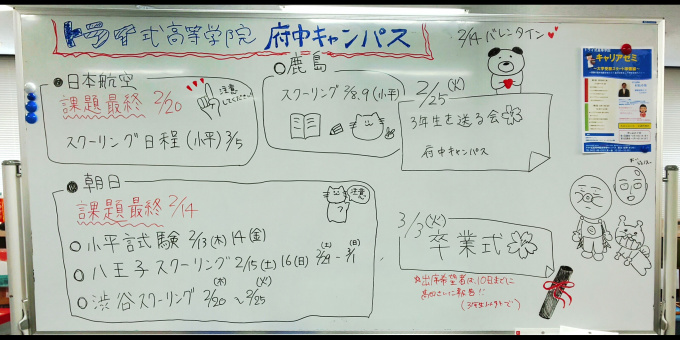 トライ式高等学院 府中キャンパス
2/14 バレンタイン
日本航空
課題最終 2/20
注意してください
スクーリング日程(小平) 3/5
鹿島
スクーリング 2/8.9 (小平)
2/25 (火)
3年生を送る会
府中キャンパス
キャリアゼミ
朝日
課題最終 2/14
注意
小平試験 2/13(木) 14(金)
八王子スクーリング 2/15(土) 16(日) 2/29(土) - 3/1(日)
渋谷スクーリング 2/20(木) ~ 2/25(火)
3/3 (火)
卒業式
※出席希望者は、10日までに
(3年生以外で)